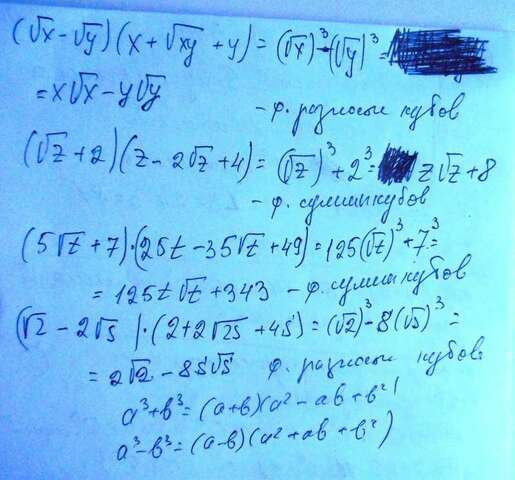 (√x - √y)(x + √xy + y) = (√x)³ - (√y)³ =
= x√x - y√y
- ф. разности кубов
(√z + 2)(z - 2√z + 4) = (√z)³ + 2³ = z√z + 8
- ф. суммы кубов
(5√t + 7)·(25t - 35√t + 49) = 125(√t)³ + 7³ =
= 125t√t + 343 - ф. сумма кубов
(√2 - 2√s)·(2 + 2√2s + 4s) = (√2)³ - 8(√s)³ =
= 2√2 - 8s√s ф. разности кубов
a³ + b³ = (a + b)(a² - ab + b²)
a³ - b³ = (a - b)(a² + ab + b²)